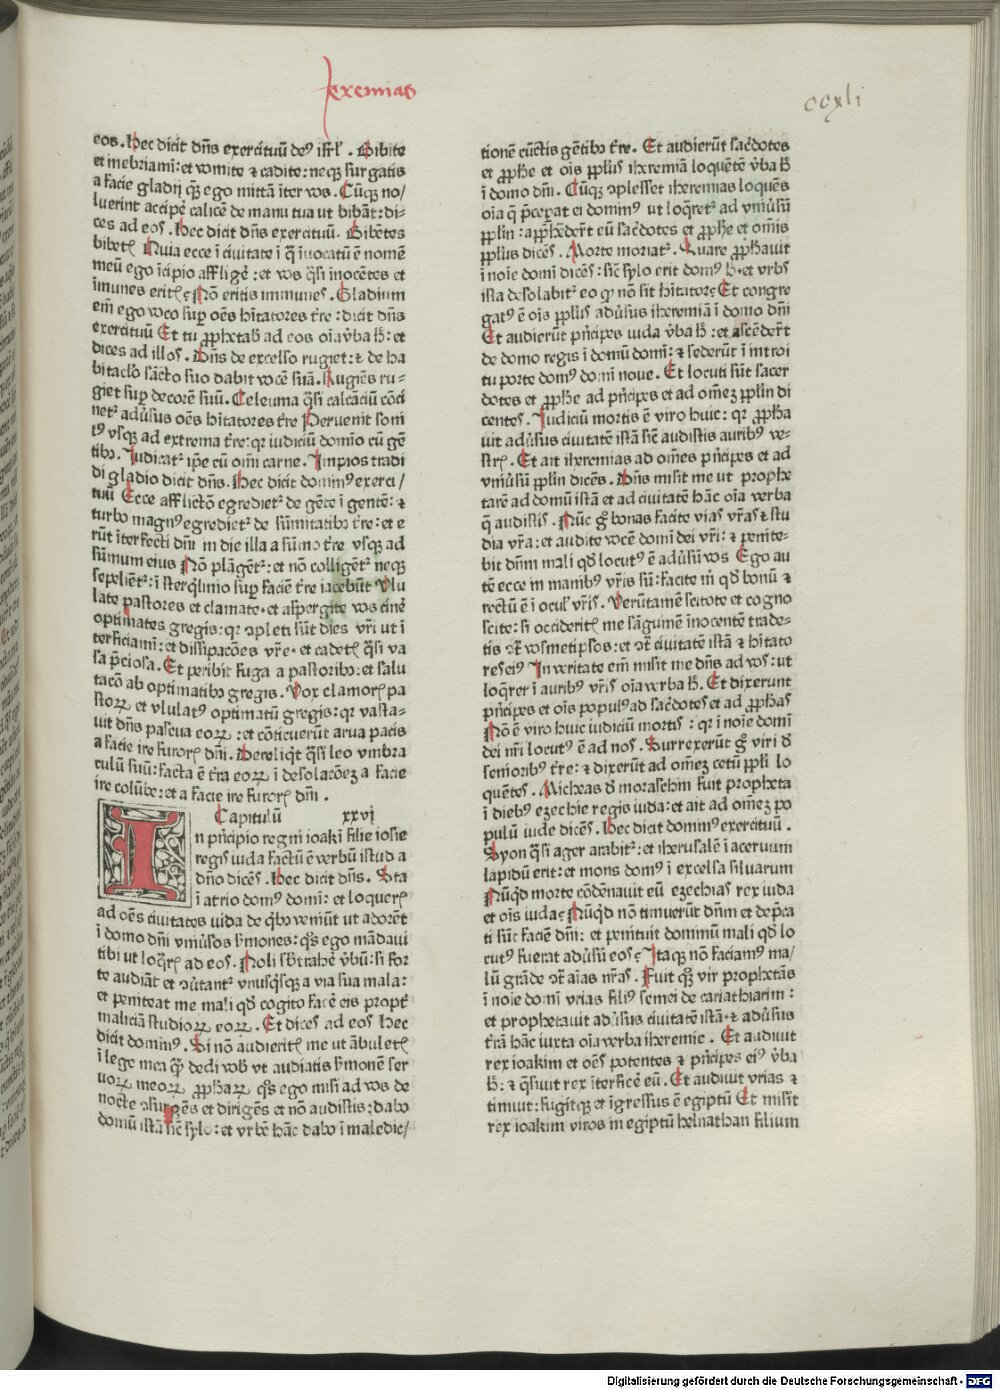 Jeremias
ccxli
eos. Hec dicit dn̄s exercituū deꝰ isrl̄. Bibite
et inebriamī: et vomite ⁊ cadite: neqꝫ surgatis
a facie gladij quē ego mittā īter vos. Cūqꝫ no/
luerint accipē calicē de manu tua ut bibāt: di-
ces ad eos. Hec dicit dn̄s exercituū. Bibētes
bibetꝭ Quia ecce ī ciuitate ī q̄ īuocatū ē nomē
meū ego īcipio affligē: et vos q̄si īnocētes et
īmunes eritꝭ; Nō eritis immunes. Gladium
em̄ ego voco sup̄ oēs h̄itatores t̄re: dicit dn̄s
exercituū Et tu ꝓphetab̄ ad eos oīa v̄ba h̄: et
dices ad illos. Dn̄s de excelso rugiet: ⁊ de ha
bitacl̄o sācto suo dabit vocē suā. Rugiēs ru-
giet sup̄ decorē suū. Celeuma q̄si calcātiū cōci
netᷣ adūsus oēs h̄itatores t̄re Peruenit soni
tꝰ vsqꝫ ad extrema t̄re: qꝛ iudiciū domīo cū gē
tibꝫ. Judicatᷣ ip̄e cū om̄i carne. Impios tradi
di gladio dicit dn̄s. Hec dicit dominꝰ exerci/
tuū Ecce afflictō egredietᷣ de gēte ī gentē: ⁊
turbo magnꝰ egredietᷣ de sūmitatibꝫ t̄re: et e
rūt īterfecti dn̄i in die illa a sūmo t̄re vsqꝫ ad
sūmum eius Nō plāgētᷣ: et nō colligētᷣ neqꝫ
sepeliētᷣ: ī sterq̄linio sup̄ faciē t̄re iacebūt Vlu
late pastores et clamate. et aspergite vos cinē
optimates gregis: qꝛ ꝯpleti sūt dies vr̄i ut ī
terficiamī: et dissipacōes vr̄e. et cadetꝭ q̄si va
sa p̄ciosa. Et peribit fuga a pastoribꝫ: et salu
tacō ab optimatibꝫ gregis. Vox clamorꝭ pa
stoꝝ et vlulatꝰ optimatū gregis: qꝛ vasta-
uit dn̄s pascua eoꝝ: et cōticuerūt arua pacis
a facie ire furorꝭ dn̄i. Dereliq̄t q̄si leo vmbra
culū suū: facta ē t̄ra eoꝝ ī desolacōeꝫ a facie
ire colūbe: et a facie ire furorꝭ dn̄i.
Capitulū xxvi
In p̄ncipio regni ioakī filie iosie
regis iuda factū ē verbū istud a
dn̄o dicēs. Hec dicit dn̄s. Sta
ī atrio domꝰ domī: et loquerꝭ
ad oēs ciuitates iuda de q̄bꝫ veniūt ut adorēt
ī domo dn̄i vniūsos s̄mones: q̄s ego mādaui
tibi ut loq̄rꝭ ad eos. Noli sb̄trahē v̄bū: si for
te audiāt et ꝯūtantᷣ vnusq̄sqꝫ a via sua mala:
et peniteat me mali qd̄ cogito facē eis propt̄
maliciā studioꝝ eoꝝ. Et dices ad eos hec
dicit dominꝰ. Si nō audieritꝭ me ut ābuletꝭ
ī lege mea quā dedi vob̄ vt audiatis s̄monē ser
uoꝝ meoꝝ ꝓphaꝝ q̄s ego misi ad vos de
nocte ꝯsurgēs et dirigēs et nō audistis: dabo
domū istā sic̄ sylo: et vrbē hāc dabo ī maledic/
tionē cūctis gētibꝫ t̄re. Et audierūt sac̄dotes
et ꝓphe et oīs ppl̄us iheremiā loquētē v̄ba h̄
ī domo dn̄i. Cūqꝫ ꝯplesset iheremias loquēs
oīa q̄ p̄cepat ei dominꝰ ut loq̄retᷣ ad vniūsū
ppl̄m: app̄hēder̄t eū sac̄dotes et ꝓphe et om̄is
ppl̄us dicēs. Morte moriatᷣ. Quare ꝓphauit
ī noīe domī dicēs: sic̄ sylo erit domꝰ h̄. et vrbs
ista desolabitᷣ eo ꝙ nō sit h̄itator; Et congre
gatꝰ ē oīs ppl̄us adūsus iheremiā ī domo dn̄i
Et audierūt p̄ncipes iuda v̄ba h̄: et ascēder̄t
de domo regis ī domū domī: ⁊ sederūt ī introi
tu porte domꝰ domī noue. Et locuti sūt sacer
dotes et ꝓphe ad p̄ncipes et ad omēꝫ ppl̄m di
centes. Judiciū mortis ē viro huic: qꝛ ꝓpha
uit adūsus ciuitatē istā sic̄ audistis auribꝰ ve-
strꝭ. Et ait iheremias ad omēs p̄ncipes et ad
vniūsū ppl̄m dicēs. Dn̄s misit me ut prophe
tarē ad domū istā et ad ciuitatē hāc oīa verba
q̄ audistis. Nūc g̊ bonas facite vias vr̄as ⁊ stu
dia vr̄a: et audite vocē domī dei vr̄i: ⁊ penite-
bit dn̄m mali qd̄ locutꝰ ē adūsū vos Ego au
tē ecce in manibꝰ vr̄is sū: facite m̄ qd̄ bonū ⁊
rectū ē ī ocul̄ vr̄is. Verūtamē scitote et cogno
scite: si occideritꝭ me sāguinē īnocentē trade-
tis ꝯt̄ vosmetip̄sos: et ꝯt̄ ciuitatē istā ⁊ h̄itato
res eiꝰ In veritate em̄ misit me dn̄s ad vos: ut
loq̄rer ī auribꝰ vr̄is oīa verba h̄. Et dixerunt
p̄ncipes et oīs populꝰ ad sac̄dotes et ad ꝓphas
Nō ē viro huic iudiciū mortis: qꝛ ī noīe domī
dei nr̄i locutꝰ ē ad nos. Surrexerūt g̊ viri d̄
senioribꝰ t̄re: ⁊ dixerūt ad omēꝫ cetū ppl̄i lo
quētes. Micheas d̄ morasthim fuit propheta
ī diebꝰ ezechie regis iuda: et ait ad omēꝫ po
pulū iude dicēs. Hec dicit dominꝰ exercituū.
Syon q̄si ager arabitᷣ: et iherusalē ī aceruum
lapidū erit: et mons domꝰ ī excelsa siluarum
Nūq̄d morte cōdēnauit eū ezechias rex iuda
et oīs iuda; Nūq̄d nō timuerūt dn̄m et dep̄ca
ti sūt faciē dn̄i: et penituit dominū mali qd̄ lo
cutꝰ fuerat adūsū eos; Itaqꝫ nō faciamꝰ ma/
lū grāde ꝯt̄ aīas nr̄as. Fuit quoqꝫ vir prophetās
ī noīe domī vrias filiꝰ semei de cariathiarim:
et prophetauit adūsus ciuitatē istā. ⁊ adūsus
t̄rā hāc iuxta oīa verba iheremie. Et audiuit
rex ioakim et oēs potentes ⁊ p̄ncipes eiꝰ v̄ba
h̄: ⁊ q̄siuit rex īterficē eū. Et audiuit vrias ⁊
timuit: fugitqꝫ et īgressus ē egiptū Et misit
rex ioakim viros in egiptū helnathan filium
Digitalisierung gefördert durch die Deutsche Forschungsgemeinschaft - DFG